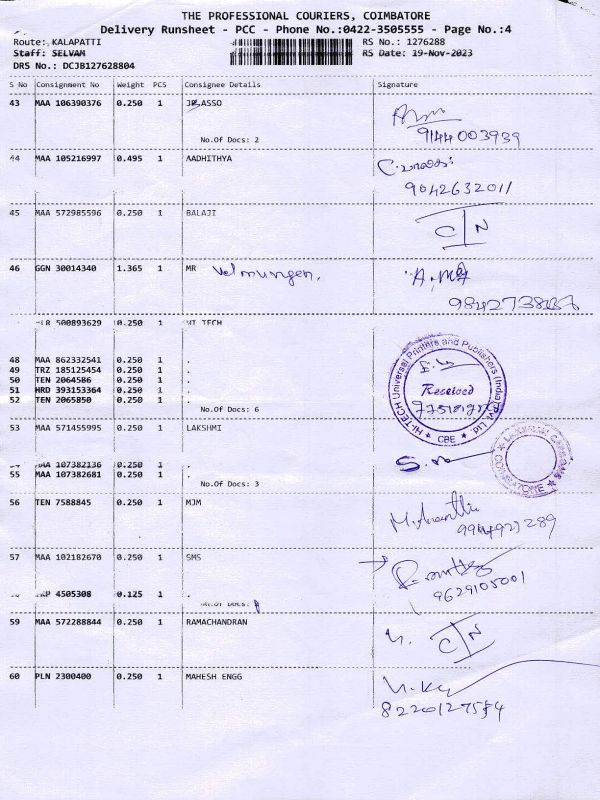 THE PROFESSIONAL COURIERS, COIMBATORE
Delivery Runsheet - PCC - Phone No.:0422-3505555 - Page No.:4
Route: KALAPATTI RS No.: 1276288
Staff: SELVAM RS Date: 19-Nov-2023
DRS No.: DCJB127628804
S No Consignment No Weight PCS Consignee Details Signature
43 MAA 106390376 0.250 1 ASSO
9144003939
No.Of Docs: 2
44 MAA 105216997 0.495 1 AADHITHYA
9042632011
45 MAA 572985596 0.250 1 BALAJI
C N
46 GGN 30014340 1.365 1 MR Velmurugan.
500893629 0.250 1 HI TECH
48 MAA 862332541 0.250 1 .
49 TRZ 185125454 0.250 1 .
50 TEN 2064586 0.250 1 .
51 HRD 393153364 0.250 1 .
52 TEN 2065850 0.250 1 .
No.Of Docs: 6
HI-TECH Universal Printers and Publishers (India) Pvt. Ltd.
Received
CBE
53 MAA 571455995 0.250 1 LAKSHMI
MAA 107382136 0.250 1 .
55 MAA 107382681 0.250 1 .
No.Of Docs: 3
COIMBATORE
56 TEN 7588845 0.250 1 MJM
57 MAA 102182670 0.250 1 SMS
9629105001
4505308 0.125 1 .
No.Of Docs:
59 MAA 572288844 0.250 1 RAMACHANDRAN
C N
60 PLN 2300400 0.250 1 MAHESH ENGG